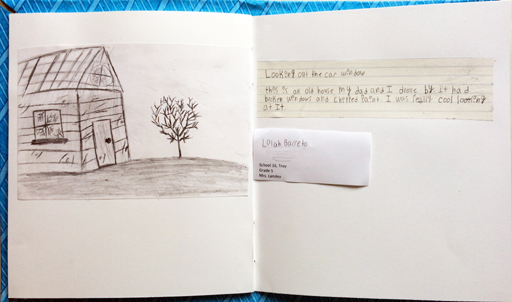 Looking out the car window
this is an old house my dad and I drove by. It had
broken windows and chented Paint. I was really cool looking
at It
Lulah Barreto
School 16, Troy
Grade 5
Mrs. Landau